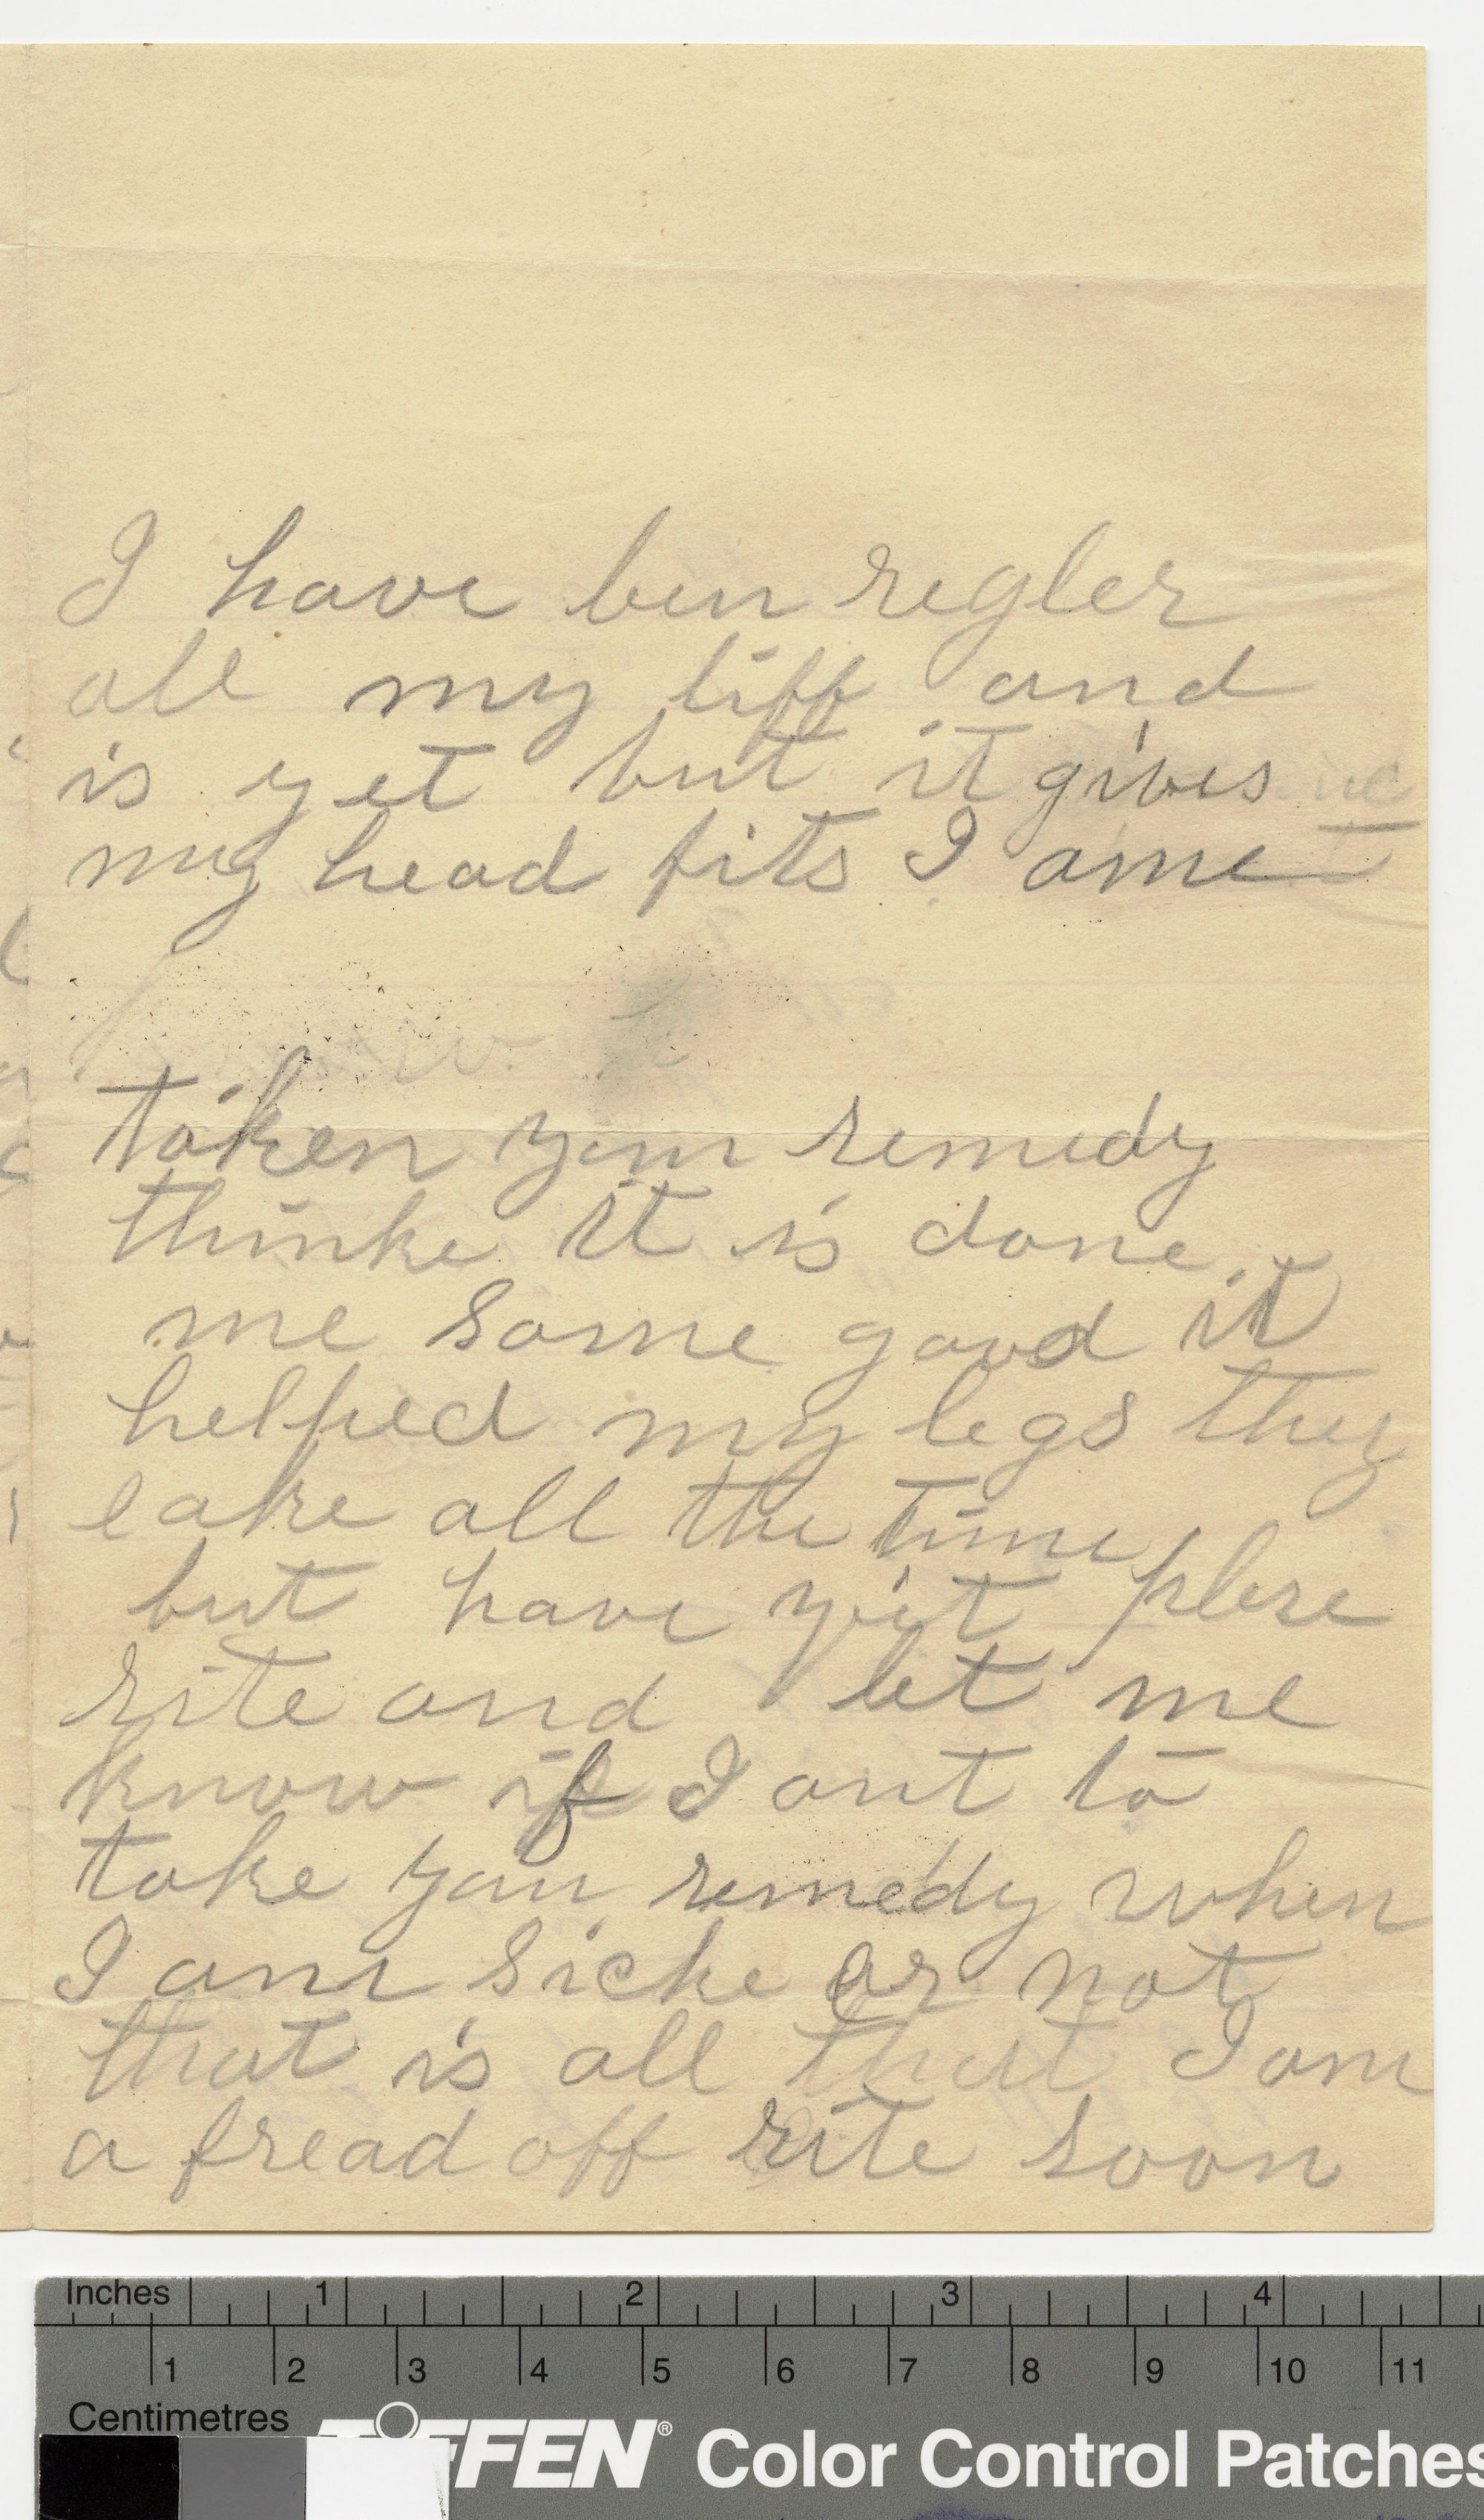 I have ben regler
all my liff and
is yet but it gives
my head fits I ame
taken your remedy
thinke it is done
me some good it
helped my legs they
eake all the time
but have yit plese
rite and let me
know if I ont to
take your remedy when
I am sicke or not
that is all that I am
a fread off rite soon
Inches 1 2 3 4
1 2 3 4 5 6 7 8 9 10 11
Centimetres
TIFFEN® Color Control Patches